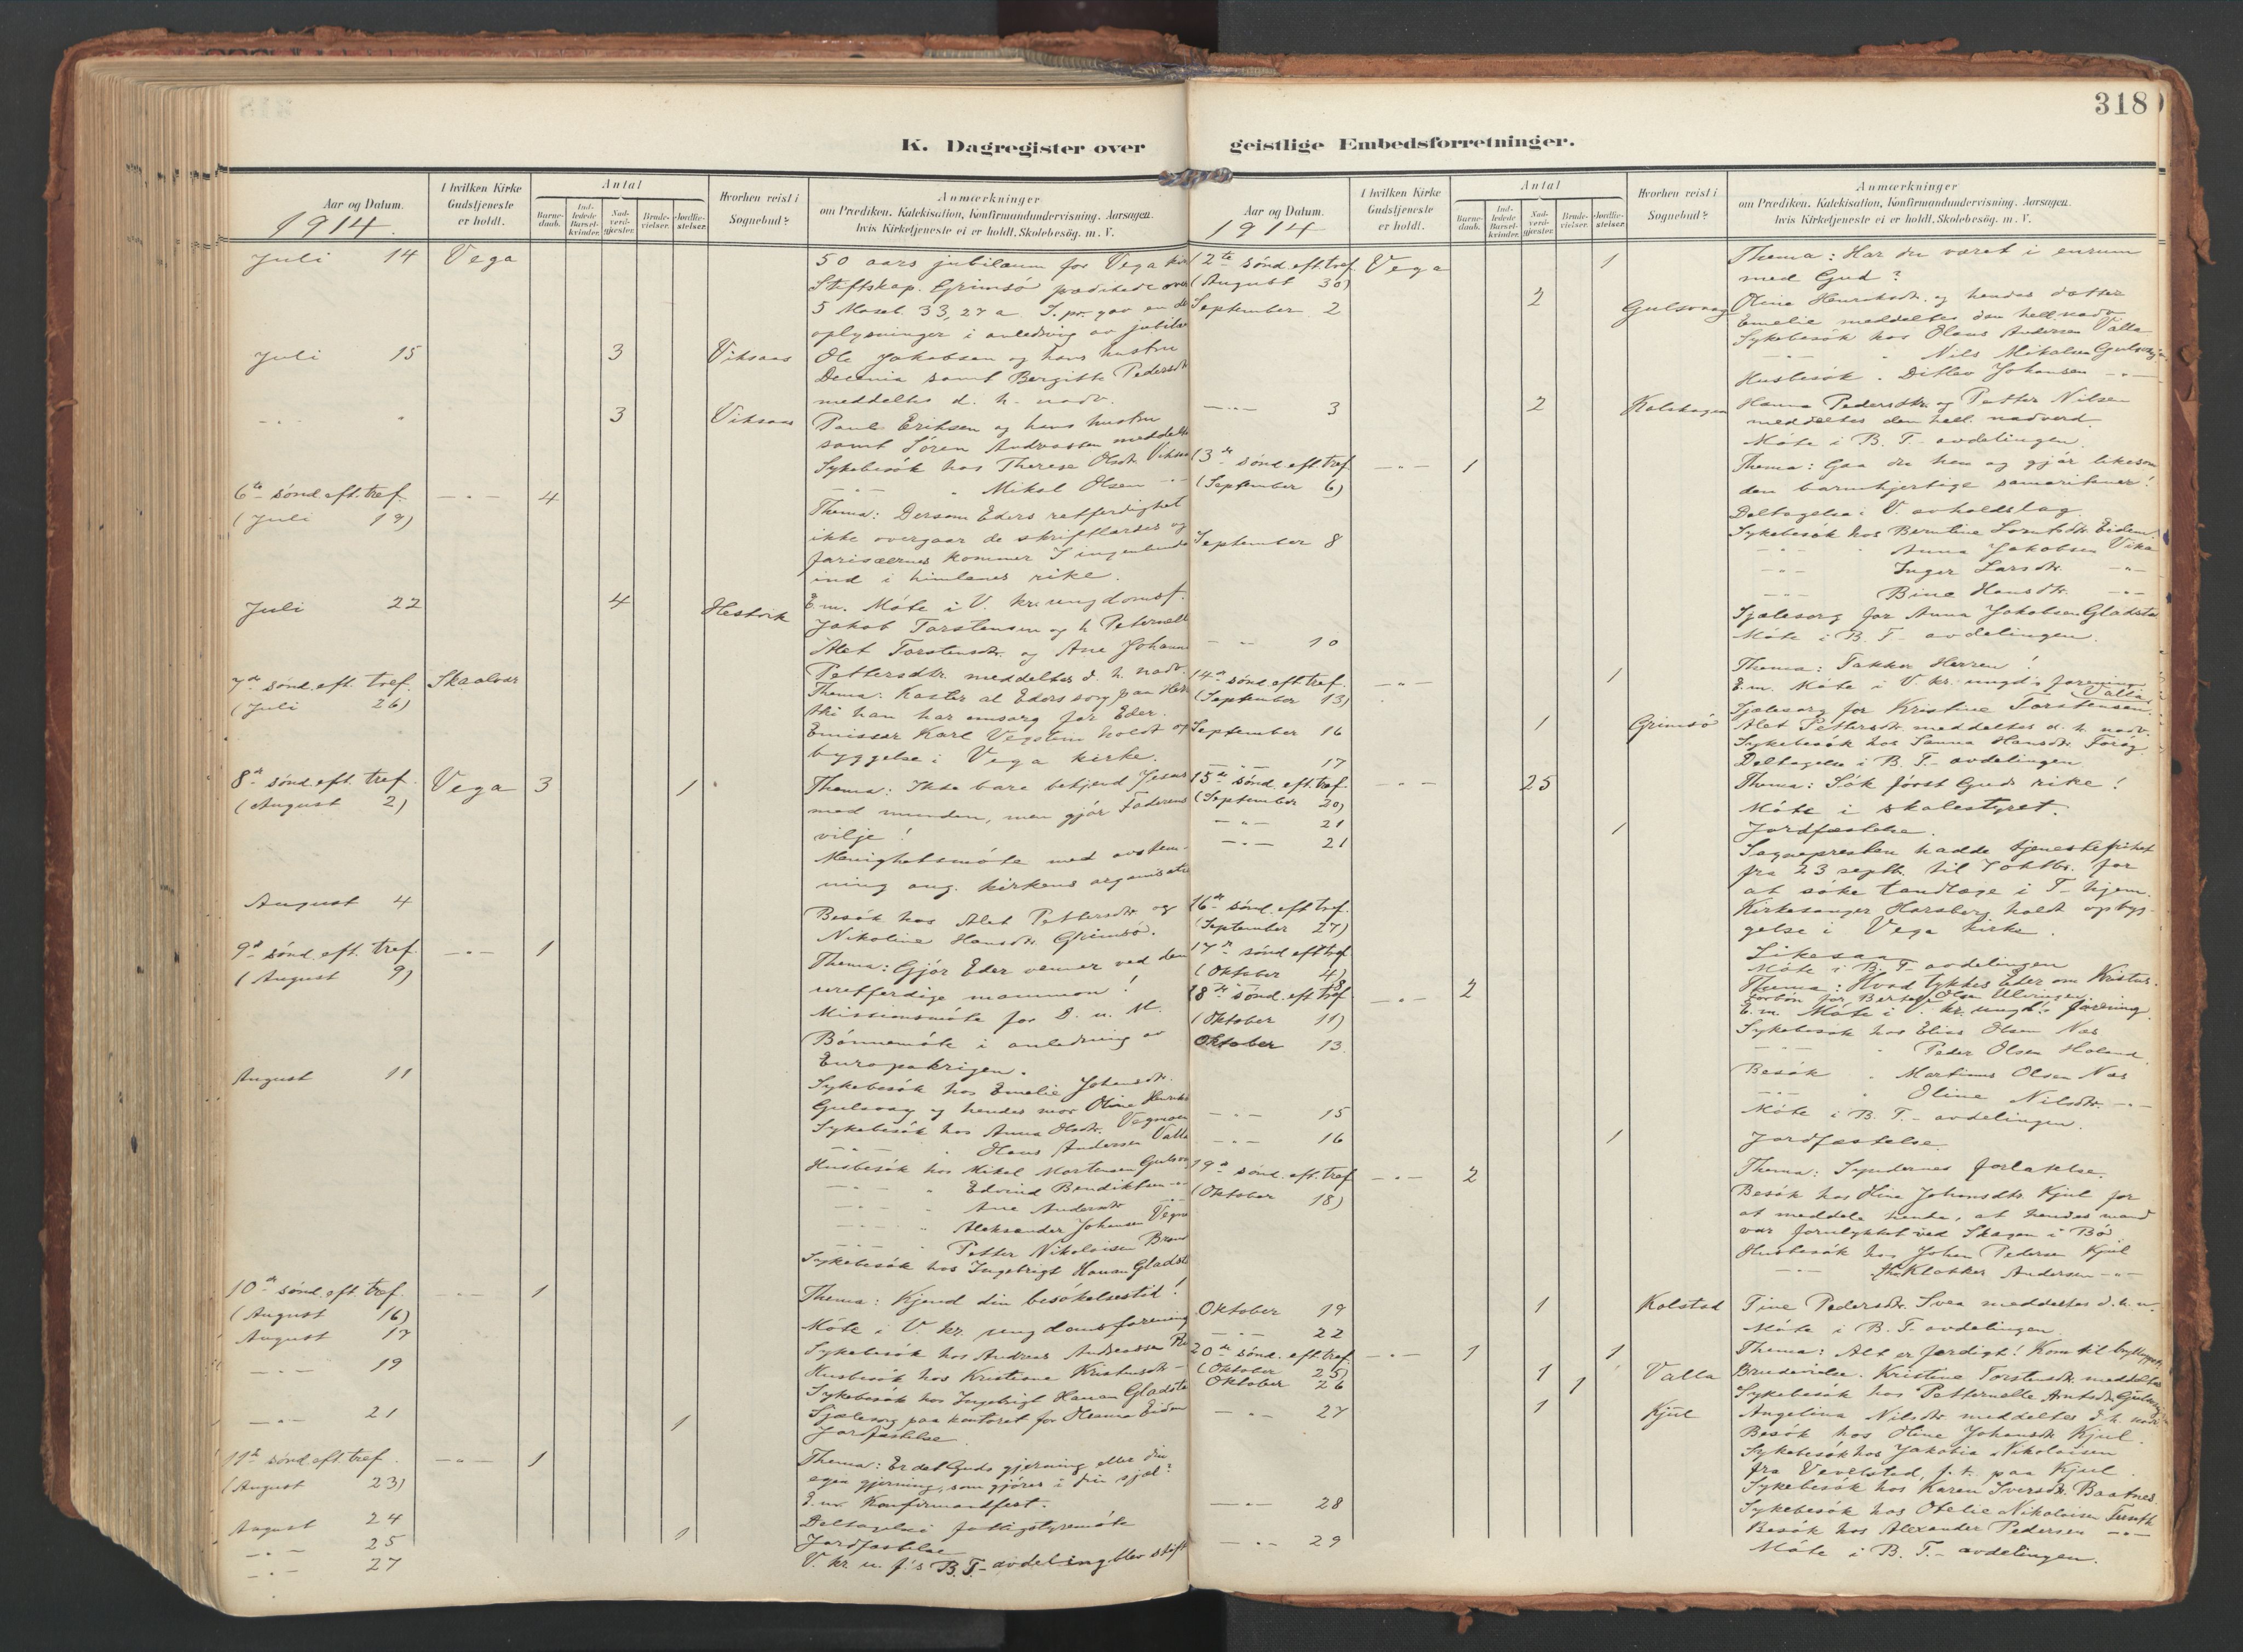 318
K. Dagregister over
Aar og Datum.
1914.
I hvilken Kirke
Gudstjeneste
er holdt.
Antal
Barne-
daab.
Ind-
ledede
Barsel-
kvinder.
Nad-
verd-
gjester.
Brude-
vielser.
Jordfæ-
stelser.
Hvorhen reist i
Sognebud?
Anmærkninger
om Prædiken. Katekisation, Konfirmandundervisning. Aarsagen.
hvis Kirketjeneste ei er holdt, Skolebesøg. m. V.
Juli 14 Vega 50 aars jubilæum for Vega
Stiftskap. Grimsö prædikede over
5 Moseb. 33, 27 a S. pr. gav en del
oplysninger i anledning av
Juli 15 3 Viksaas Ole Jakobsen og hans hustru
Decenia samt Bergitte Pedersdtr
meddeltes d. h. nadv.
-"- " 3 Viksaas Paul Eriksen og hans hustru
samt Sören Andreassen meddeltes
Sykebesök hos Therese Olsdtr.
-"- " Mikal Olsen -"-
6te sönd. eft. tref. -"- 4
(Juli 19) Thema: Dersom Eders retferdighet
ikke overgaar de skriftlærdes og
farisæernes kommer I ingenlunde
ind i himlenes rike.
Juli 22 4 Hestvik E.m. Möte i V. kr. ungdomsf.
Jakob Torstensen og h.
Alet Torstensdtr. og Ane
Pettersdtr. meddeltes d. h. nadv.
7de sönd. eft. tref. Skaalvær Thema: Kaster al Eders sorg paa
(Juli 26) thi han har omsorg for Eder.
Emissær Karl holdt op-
byggelse i Vega kirke.
8de sönd. eft. tref. Vega 3 1 Thema: Ikke bare bekjend Jesus
(August 2) med munden, men gjör Faderens
vilje!
Menighetsmöte med avstem-
ning ang. kirkens
August 4 Besök hos Alet Pettersdtr. og
Nikoline Hansdtr. Grimsö.
9de sönd. eft. tref. -"- 1 Thema: Gjör Eder venner ved den
(August 9) uretferdige mammon!
Missionsmöte for D. n. M.
Bönnemöte i anledning av
Europakrigen.
August 11 Sykebesök hos Emelie Johansdtr.
Gulsvaag og hendes mor Oline
Sykebesök hos Anna Olsdtr.
-"- " Olaus Andersen Valla
Husbesök hos Mikal Mortensen
-"- " Edvind Bendiktsen -"-
-"- " Ane Andersdtr
-"- " Aleksander Johansen
-"- " Petter Nikolaisen
Sykebesök hos Ingebrigt Hansen
10de sönd. eft. tref. -"- 1 Thema: Kjend din besökelsestid!
(August 16) Möte i V. kr. ungdomsforening
August 17 Sykebesök hos Andreas Andreassen
-"- 19 Husbesök hos Kristiane
Sykebesök hos Ingebrigt Hansen
-"- 21 1 Sjælesorg paa kontoret for Eidem
Jordfæstelse.
11te sönd. eft. tref. -"- 1 Thema: Er det Guds gjerning eller din
(August 23) egen gjerning, som gjöres i din sjæl?
E.m. Konfirmandfest.
August 24 Deltagelse i fattigstyremöte
-"- 25 1 Jordfæstelse
-"- 27 V. kr. u. f.'s B. T.-avdeling blev stift
geistlige Embedsforretninger.
Aar og Datum.
1914
I hvilken Kirke
Gudstjeneste
er holdt.
Antal
Barne-
daab.
Ind-
ledede
Barsel-
kvinder.
Nad-
verd-
gjester.
Brude-
vielser.
Jordfæ-
stelser.
Hvorhen reist i
Sognebud?
Anmærkninger
om Prædiken. Katekisation, Konfirmandundervisning. Aarsagen.
hvis Kirketjeneste ei er holdt, Skolebesög. m. V.
12te sönd. eft. tref. Vega 1 Thema: Har du været i enrum
(August 30) med Gud?
September 2 2 Gulsvaag Oline Henriksdtr. og hendes datter
Emelie meddeltes den hell. nadv.
Sykebesök hos Olaus Andersen Valla
-"- " Nils Mikalsen
Husbesök " Ditlev Johansen -"-
-"- 3 2 Hanna Pedersdtr. og Petter Nilsen
meddeltes den hell. nadverd.
Möte i B. T.-avdelingen.
13de sönd. eft. tref. -"- 1 Thema: Gaa du hen og gjör likesom
(September 6) den barmhjertige samaritaner!
Deltagelse i V. avholdslag.
September 8 Sykebesök hos Berntine Eidem.
-"- " Anna Jakobsen Vika
-"- Inger Larsdtr. -"-
-"- Bine Hansdtr. -"-
Sjælesorg for Anna Jakobsen
-"- 10 Möte i B. T.-avdelingen.
14de sönd. eft. tref. -"- 1 Thema: Takker Herren!
(September 13) E.m. Möte i V. kr. ungd's forening
Sjælesorg for Kristine Torstensen. Valla
September 16 1 Grimsö Alet Pettersdtr. meddeltes d. h. nadv.
Sykebesök hos Sanna Hansdtr.
-"- 17 Deltagelse i B. T.-avdelingen.
15de sönd. eft. tref. -"- 25 Thema: Sök först Guds rike!
(September 20)
-"- 21 Möte i skolestyret.
-"- 21 1 Jordfæstelse.
Sognepresten hadde tjenestefrihet
fra 23 septb. til 7 oktbr. for
at söke tandlæge i T-hjem.
16de sönd. eft. tref. Kirkesanger Harsberg holdt opbyg-
(September 27) gelse i Vega kirke.
17de sönd. eft. tref. Likesaa
(Oktober 4)
-"- 8 Möte i B. T-avdelingen
18de sönd. eft. tref. -"- 2 Thema: Hvad tykkes Eder om Kristus.
Forbön for Olsen
(Oktober 11) E.m. Möte i V. kr. ungd's forening.
Oktober 13. Sykebesök hos Elias Olsen Næs
-"- " Peder Olsen Holand.
Besök " Martinus Olsen Næs
-"- " Oline Nilsdtr. -"-
-"- 15 Möte i B. T.-avdelingen.
-"- 16 1 Jordfæstelse.
19de sönd. eft. tref -"- 2 Thema: Syndernes forlatelse.
(Oktober 18) Besök hos Oline Johansdtr. Kjul for
at meddele hende, at hendes mand
var forulykket ved Skagen i Bö.
Husbesök hos Johan Pedersen Kjul
-"- Andersen -"-
Oktober 19 1 Kolstad Tine Pedersdtr. Svea meddeltes d. h. n.
-"- 22 Möte i B. T-avdelingen.
20de sönd. eft. tref. -"- 1 1 Thema: Alt er færdigt! Kom til
(Oktober 25)
Oktober 26 1 1 Valla Brudevielse. Kristine Torstensdtr. meddeltes
Sykebesök hos Petternelle
-"- 27 1 Kjul Angelina Nilsdtr meddeltes d. h. nadv.
Besök hos Oline Johansdtr. Kjul.
Sykebesök hos Jakobia Nikolaisen
fra Vevelstad, f. t. paa Kjul.
Sykebesök hos Karen Iversdtr. Baatnes.
-"- 28 Sykebesök hos Otelie Nikolaisen
Besök hos Alexander Pedersen -"-
-"- 29 Möte i B. T.-avdelingen.